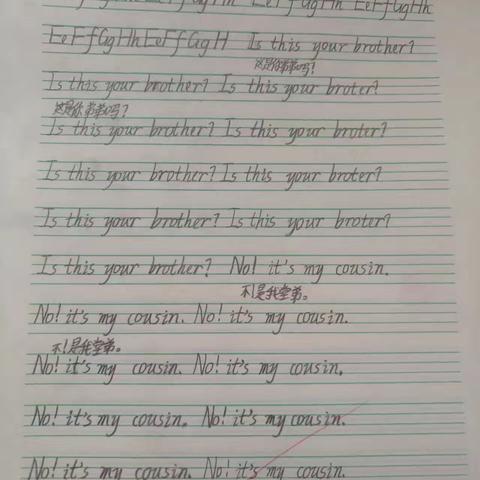 EeFfGgHh EeFfGgHh
EeFfGgHhEeFfGgH Is this your brother?
这是你弟弟吗?
Is this your brother? Is this your broter?
这是你弟弟吗?
Is this your brother? Is this your broter?
Is this your brother? Is this your broter?
Is this your brother? Is this your broter?
Is this your brother? No! it's my cousin.
不!是我堂弟。
No! it's my cousin. No! it's my cousin.
不!是我堂弟。
No! it's my cousin. No! it's my cousin.
No! it's my cousin. No! it's my cousin.
No! it's my cousin. No! it's my cousin.